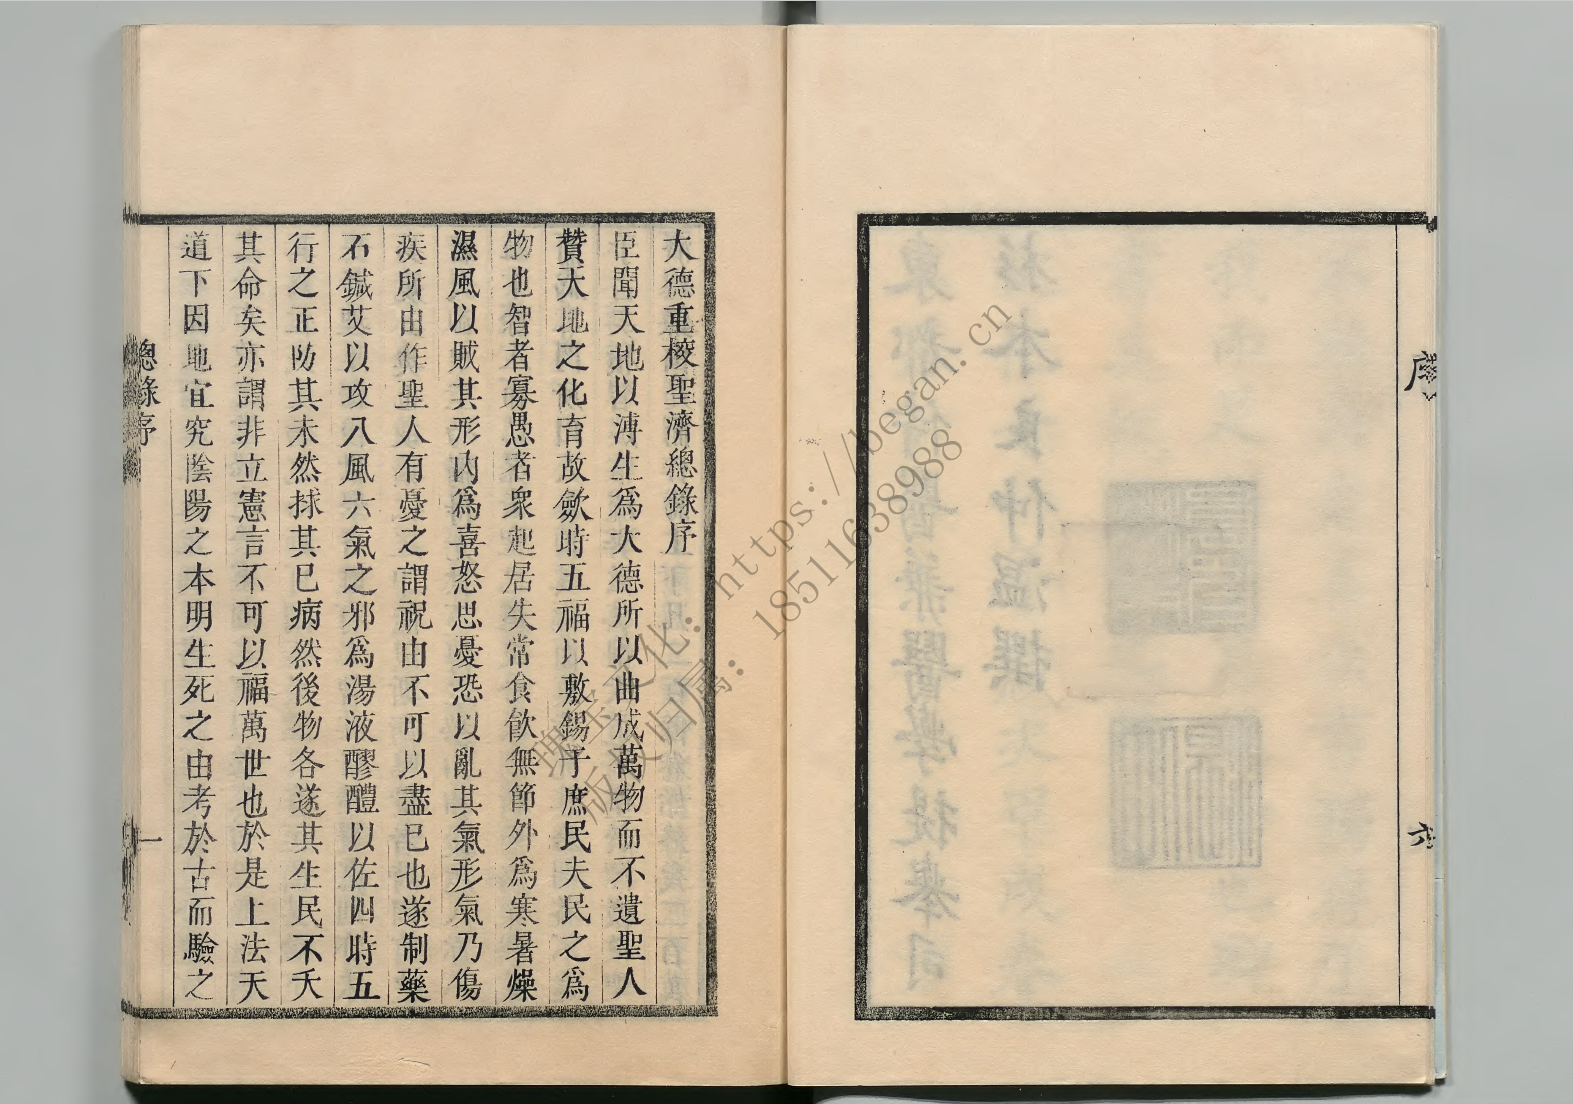 序
六
大德重校聖濟總錄序
臣聞天地以溥生爲大德所以曲成萬物而不遺聖人
贊天地之化育故歛時五福以敷錫于庶民夫民之爲
物也智者寡愚者衆起居失常食飮無節外爲寒暑燥
濕風以賊其形内爲喜怒思憂恐以亂其氣形氣乃傷
疾所由作聖人有憂之謂祝由不可以盡已也遂制藥
石鍼艾以攻八風六氣之邪爲湯液醪醴以佐四時五
行之正防其未然捄其已病然後物各遂其生民不夭
其命矣亦謂非立憲言不可以福萬世也於是上法天
道下因地宜究陰陽之本明生死之由考於古而驗之
總錄序
一
瑰宝文化：https://began.cn
版权归属：18511638988